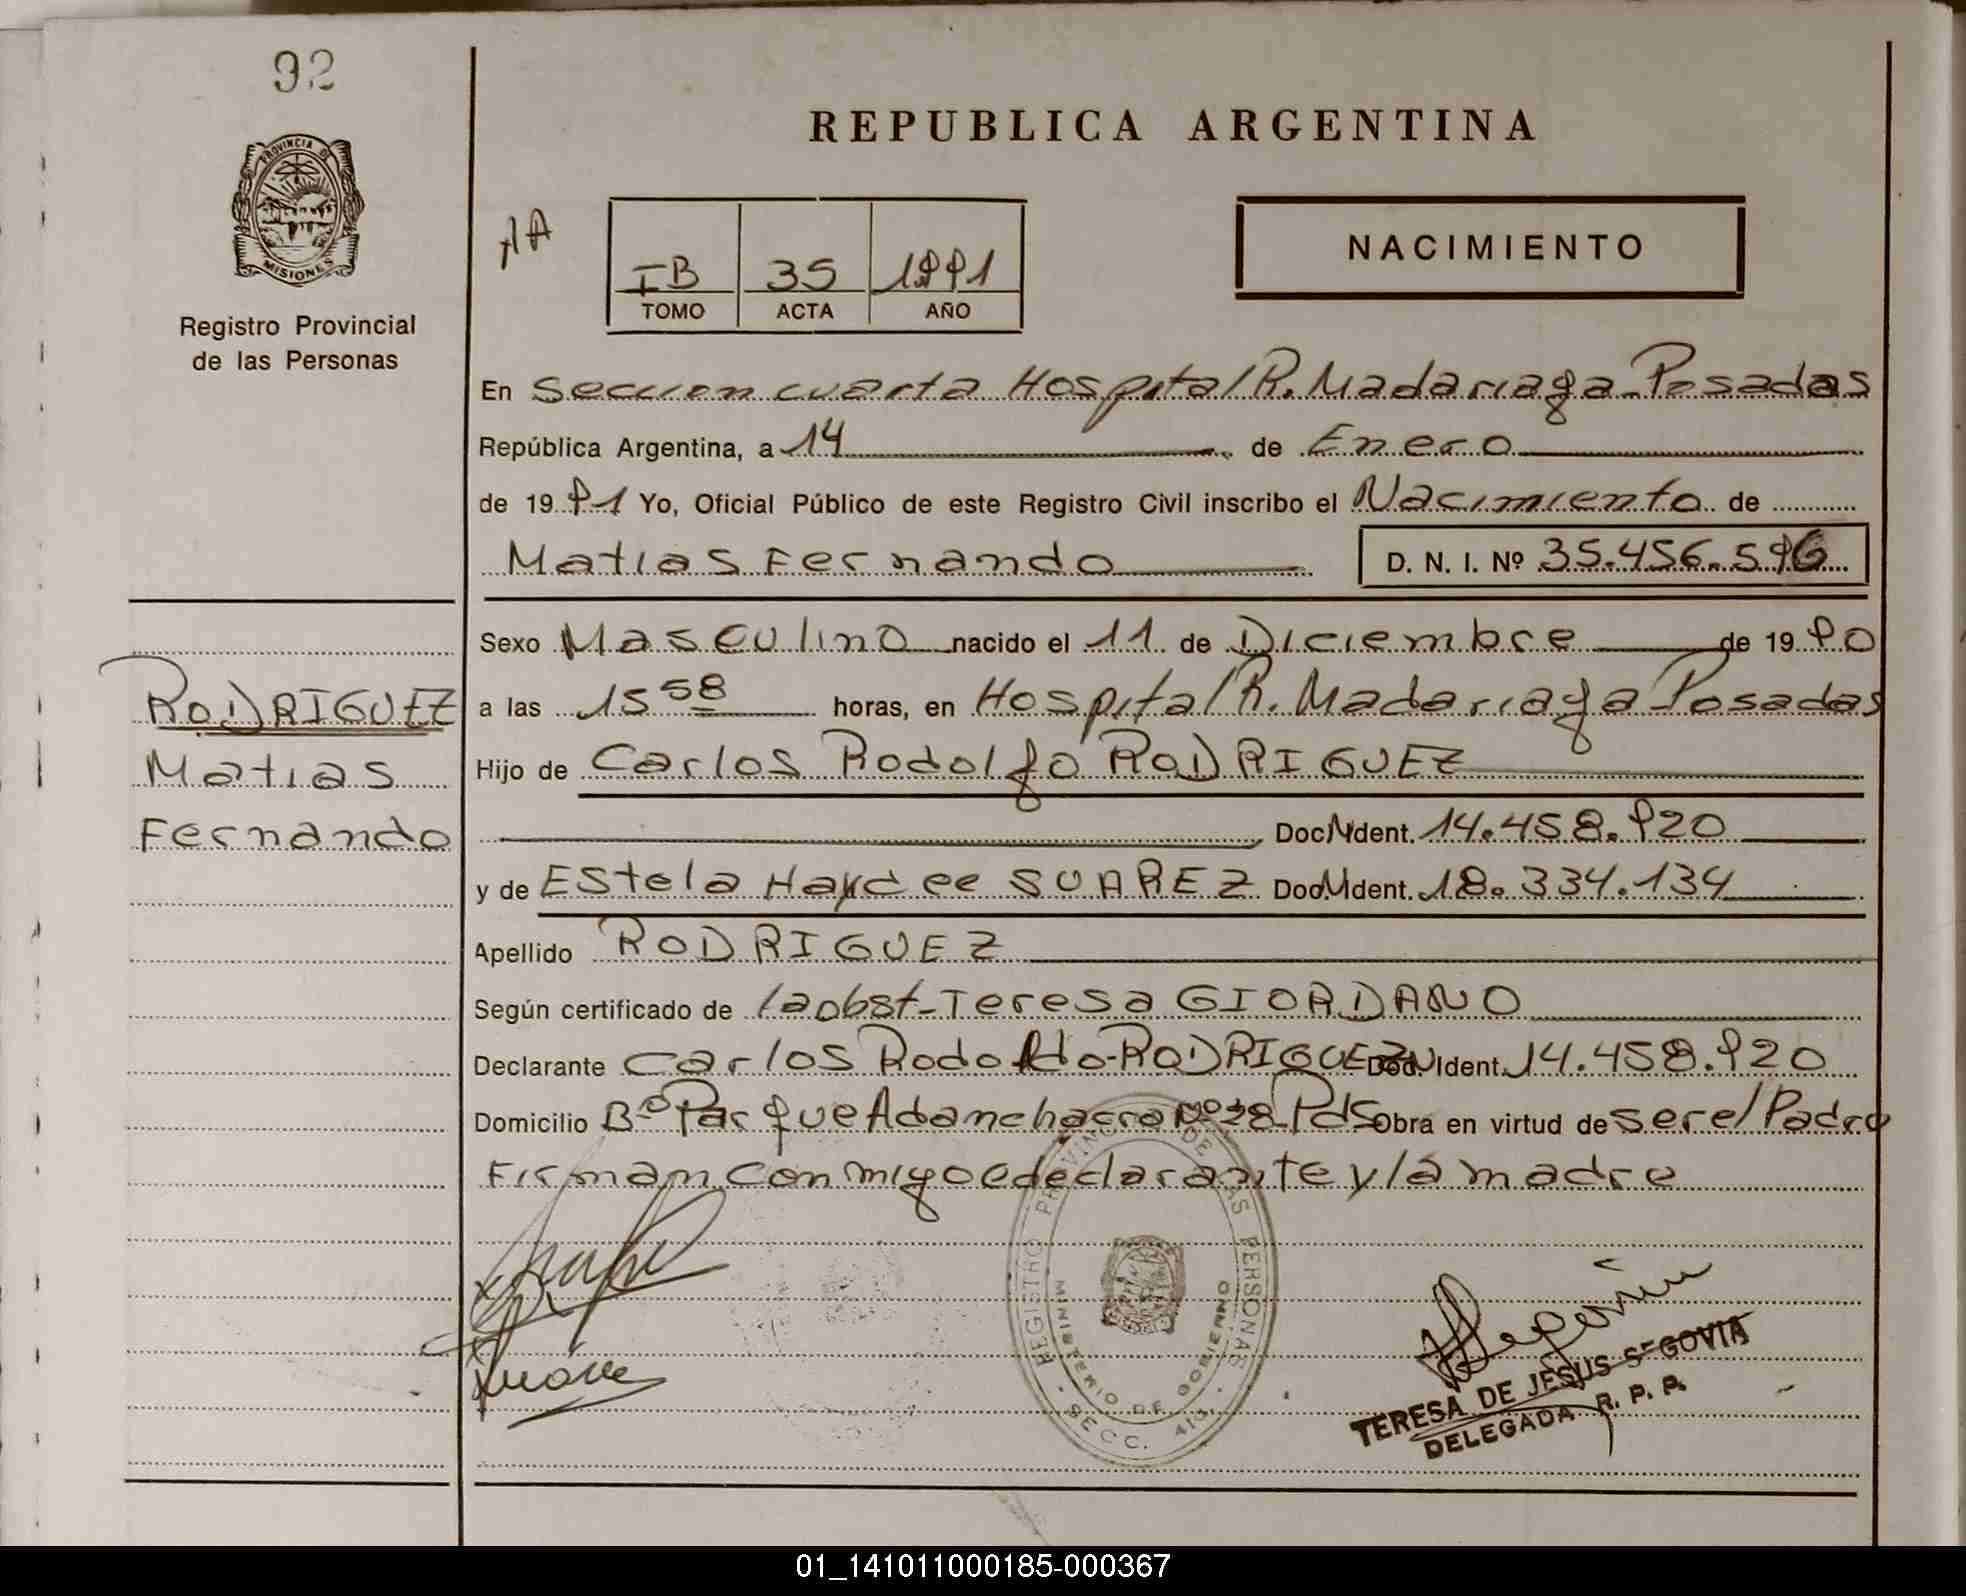 92
PROVINCIA DE
MISIONES
Registro Provincial
de las Personas
REPUBLICA ARGENTINA
IB 35 1991
TOMO ACTA AÑO
NACIMIENTO
En Seccion cuarta Hospital R. Madariaga - Posadas
República Argentina, a 14 de Enero
de 19 91 Yo, Oficial Público de este Registro Civil inscribo el Nacimiento de
Matias Fernando D. N. I. Nº 35.456.596
Sexo Masculino nacido el 11 de Diciembre de 19 90
a las 15 58 horas, en Hospital R. Madariaga Posadas
Hijo de Carlos Rodolfo RODRIGUEZ
Doc. Ident. 14.458.920
y de Estela Haydee SUAREZ Doc. Ident. 18.334.134
Apellido RODRIGUEZ
Según certificado de la obst- Teresa GIORDANO
Declarante Carlos Rodolfo - RODRIGUEZ Doc. Ident. 14.458.920
Domicilio Bº Parque Adam chacra Nº 28 - Pds Obra en virtud de ser el Padre
Firman conmigo e declarante y la madre
RODRIGUEZ
Matias
Fernando
REGISTRO PROVINCIAL DE LAS PERSONAS
MINISTERIO DE GOBIERNO
SECC.
TERESA DE JESUS SEGOVIA
DELEGADA R. P. P.
01_141011000185-000367